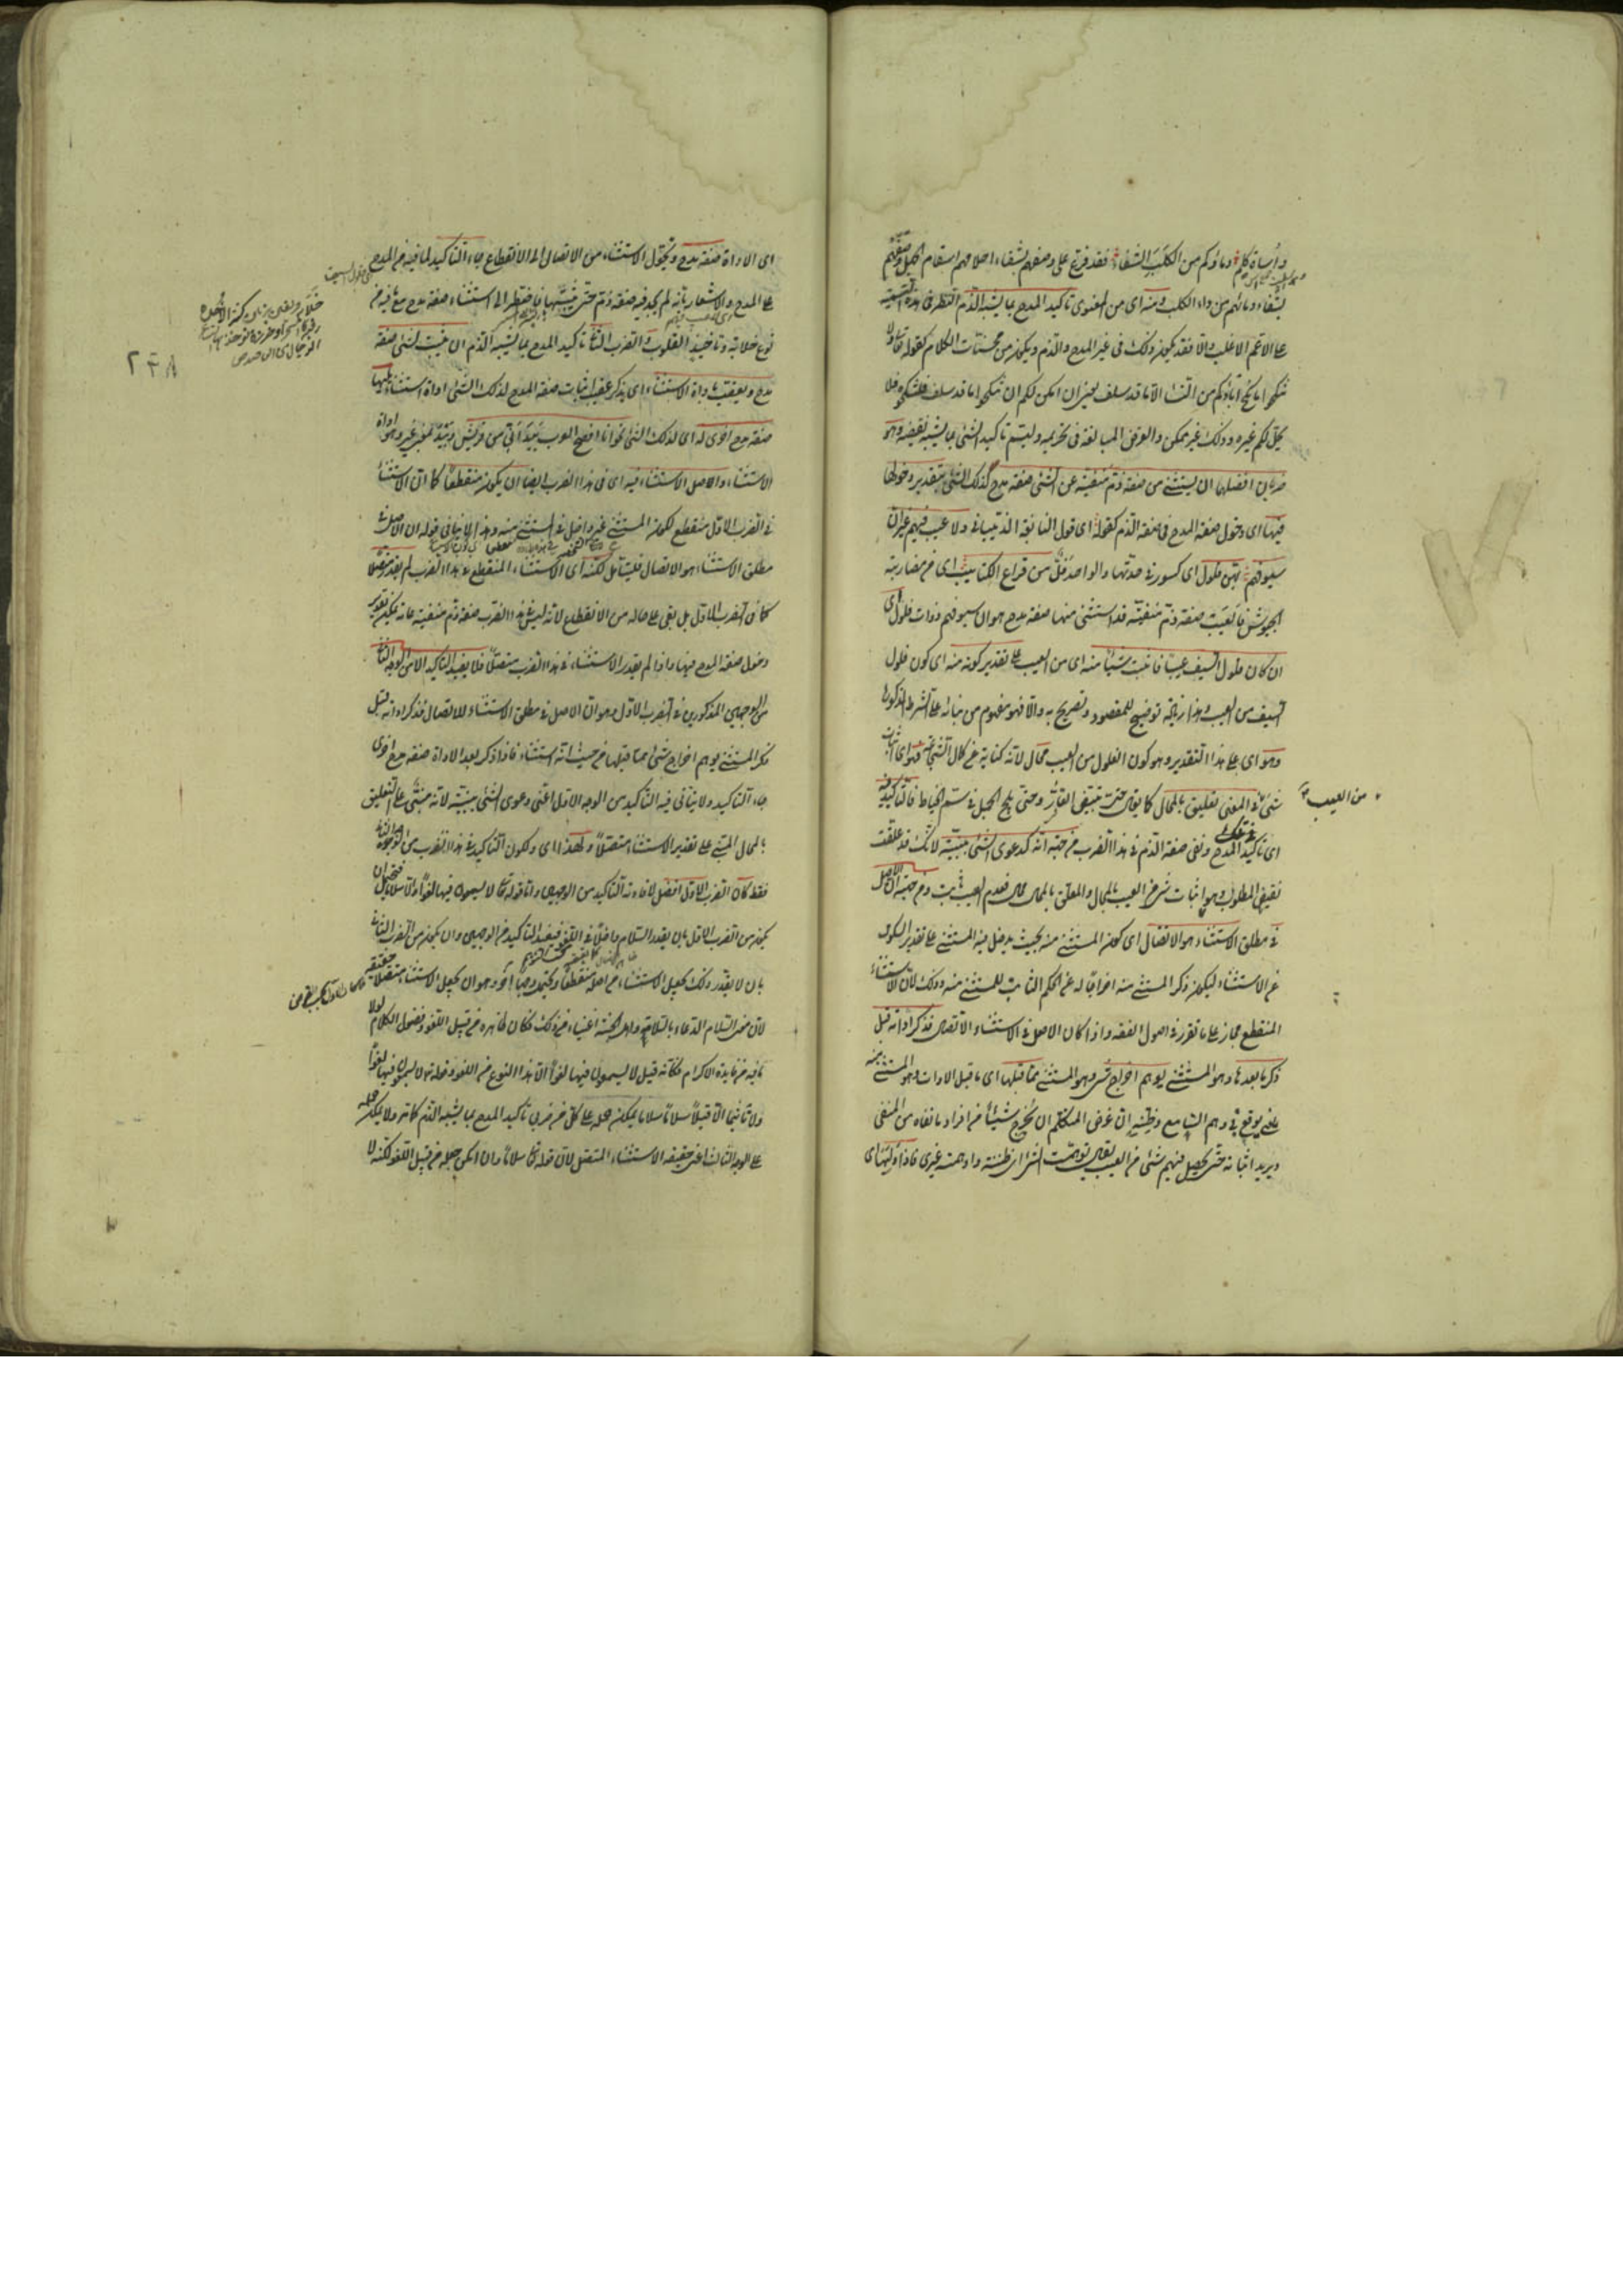 وأساة كلم ودماؤكم من الكلب الشفاء فقد فرع على وصفهم بشفاء احلامهم لسقام الجهل وصفهم
بشفاء دمائهم من داء الكلب ومنه اى من المعنوى تاكيد المدح بما يشبه الذم النظر فى هذه التسمية
على الاعم الاغلب والا فقد يكون ذلك فى غير المدح والذم ويكون من محسنات الكلام كقوله تعالى ولا
تنكحوا ما نكح آباؤكم من النساء الا ما قد سلف يعنى ان امكن لكم ان تنكحوا ما قد سلف فانكحوه فلا
يحل لكم غيره وذلك غير ممكن والغرض المبالغة فى تحريمه وليسم تاكيد الشئ بما يشبه نقيضه وهو
ضربان افضلهما ان يستثنى من صفة ذم منفية عن الشئ صفة مدح لذلك الشئ بتقدير دخولها
فيها اى دخول صفة المدح فى صفة الذم كقوله اى قول النابغة الذبيانى ولا عيب فيهم غير ان
سيوفهم بهن فلول اى كسور فى حدتها والواحد فل من قراع الكتائب اى من مضاربة
الجيوش فالعيب صفة ذم منفية قد استثنى منها صفة مدح هو ان سيوفهم ذوات فلول اى
ان كان فلول السيف عيبا فاثبت شيئا منه اى من العيب على تقدير كونه منه اى كون فلول
السيف من العيب وهذا زيادة توضيح للمقصود وتصريح به والا فهو مفهوم من بنائه على الشرط المذكور
وهو اى على هذا التقدير وهو كون الفلول من العيب محال لانه كناية عن كمال الشجاعة فهو اى اثبات
شئ فى المعنى تعليق بالمحال كما يقال حتى يبيض القار وحتى يلج الجمل فى سم الخياط فالتاكيد فيه
من العيب
اى تاكيد المدح ونفى صفة الذم فى هذا الضرب من جهة انه كدعوى الشئ ببينة لانك قد علقت
نقيض المطلوب وهو اثبات شئ من العيب بالمحال والمعلق بالمحال محال فعدم العيب ثابت ومن جهة ان الاصل
فى مطلق الاستثناء هو الاتصال اى كون المستثنى منه بحيث يدخل فيه المستثنى على تقدير السكوت
عن الاستثناء ليكون ذكر المستثنى منه اخراجا له عن الحكم الثابت للمستثنى منه وذلك لان الاستثناء
المنقطع مجاز على ما تقرر فى اصول الفقه واذا كان الاصل فى الاستثناء الاتصال فذكر اداته قبل
ذكر ما بعدها وهو المستثنى يوهم اخراج شئ وهو المستثنى مما قبلها اى ما قبل الادات وهو المستثنى منه
يعنى يوقع فى وهم السامع وظنه ان غرض المتكلم ان يخرج شيئا من افراد ما نفاه من المنفى
ويريد اثباته حتى يحصل فيهم شئ من العيب يقال توهمت الشئ اى ظننته واوهمت غيرى فاذا وليها اى
اى الاداة صفة مدح وتحول الاستثناء من الاتصال الى الانقطاع جاء التاكيد لما فيه من المدح
على المدح والاشعار بانه لم يجد فيه صفة ذم حتى يثبتها فاضطر الى استثناء صفة مدح مع ما فيه من
نوع خلابة وتاخيذ القلوب والضرب الثانى تاكيد المدح بما يشبه الذم ان يثبت لشئ صفة
مدح ويعقب باداة الاستثناء اى يذكر عقيب اثبات صفة المدح لذلك الشئ اداة استثناء يليها
صفة مدح اخرى له اى لذلك الشئ نحو انا افصح العرب بيد انى من قريش وبيد بمعنى غير وهو اداة
الاستثناء والاصل الاستثناء فيه اى فى هذا الضرب ايضا ان يكون منقطعا كما ان الاستثناء
فى الضرب الاول منقطع لكون المستثنى غير داخل فى المستثنى منه وهذا لا ينافى قوله ان الاصل فى
مطلق الاستثناء هو الاتصال فليتامل لكنه اى الاستثناء المنقطع فى هذا الضرب لم يقدر متصلا
كما فى الضرب الاول بل بقى على حاله من الانقطاع لانه ليس فى هذا الضرب صفة ذم منفية عامة يمكن تقدير
دخول صفة المدح فيها واذا لم يقدر الاستثناء فى هذا الضرب متصلا فلا يفيد التاكيد الا من الوجه الثانى
من الوجهين المذكورين فى الضرب الاول وهو ان الاصل فى مطلق الاستثناء الاتصال فذكر اداته قبل
ذكر المستثنى يوهم اخراج شئ مما قبلها من حيث انه استثناء فاذا ذكر بعد الاداة صفة مدح اخرى
جاء التاكيد ولا يتأتى فيه التاكيد من الوجه الاول اعنى دعوى الشئ ببينة لانه مبنى على التعليق
بالمحال المبنى على تقدير الاستثناء متصلا ولهذا اى ولكون التاكيد فى هذا الضرب من الوجه الثانى
فقط كان الضرب الاول افضل لافادته التاكيد من الوجهين واما قوله تعالى لا يسمعون فيها لغوا الا سلاما فيحتمل ان
يكون من الضرب الاول بان يقدر السلام داخلا فى اللغو فيفيد التاكيد من الوجهين وان يكون من الضرب الثانى
بان لا يقدر ذلك ويجعل الاستثناء من اصله منقطعا ويحتمل وجها آخر وهو ان يجعل الاستثناء متصلا حقيقة
لان معنى السلام الدعاء بالسلامة واهل الجنة اغنياء عن ذلك فكان ظاهره من قبيل اللغو وفضول الكلام لولا
ما فيه من فايدة الاكرام فكانه قيل لا يسمعون فيها لغوا الا هذا النوع من اللغو وقوله تعالى لا يسمعون فيها لغوا
ولا تاثيما الا قيلا سلاما سلاما يمكن حمله على كل من ضربى تاكيد المدح بما يشبه الذم كما مر ولا يمكن حمله
على الوجه الثالث اعنى حقيقة الاستثناء المتصل لان قوله تعالى سلاما وان امكن جعله من قبيل اللغو لكنه لا